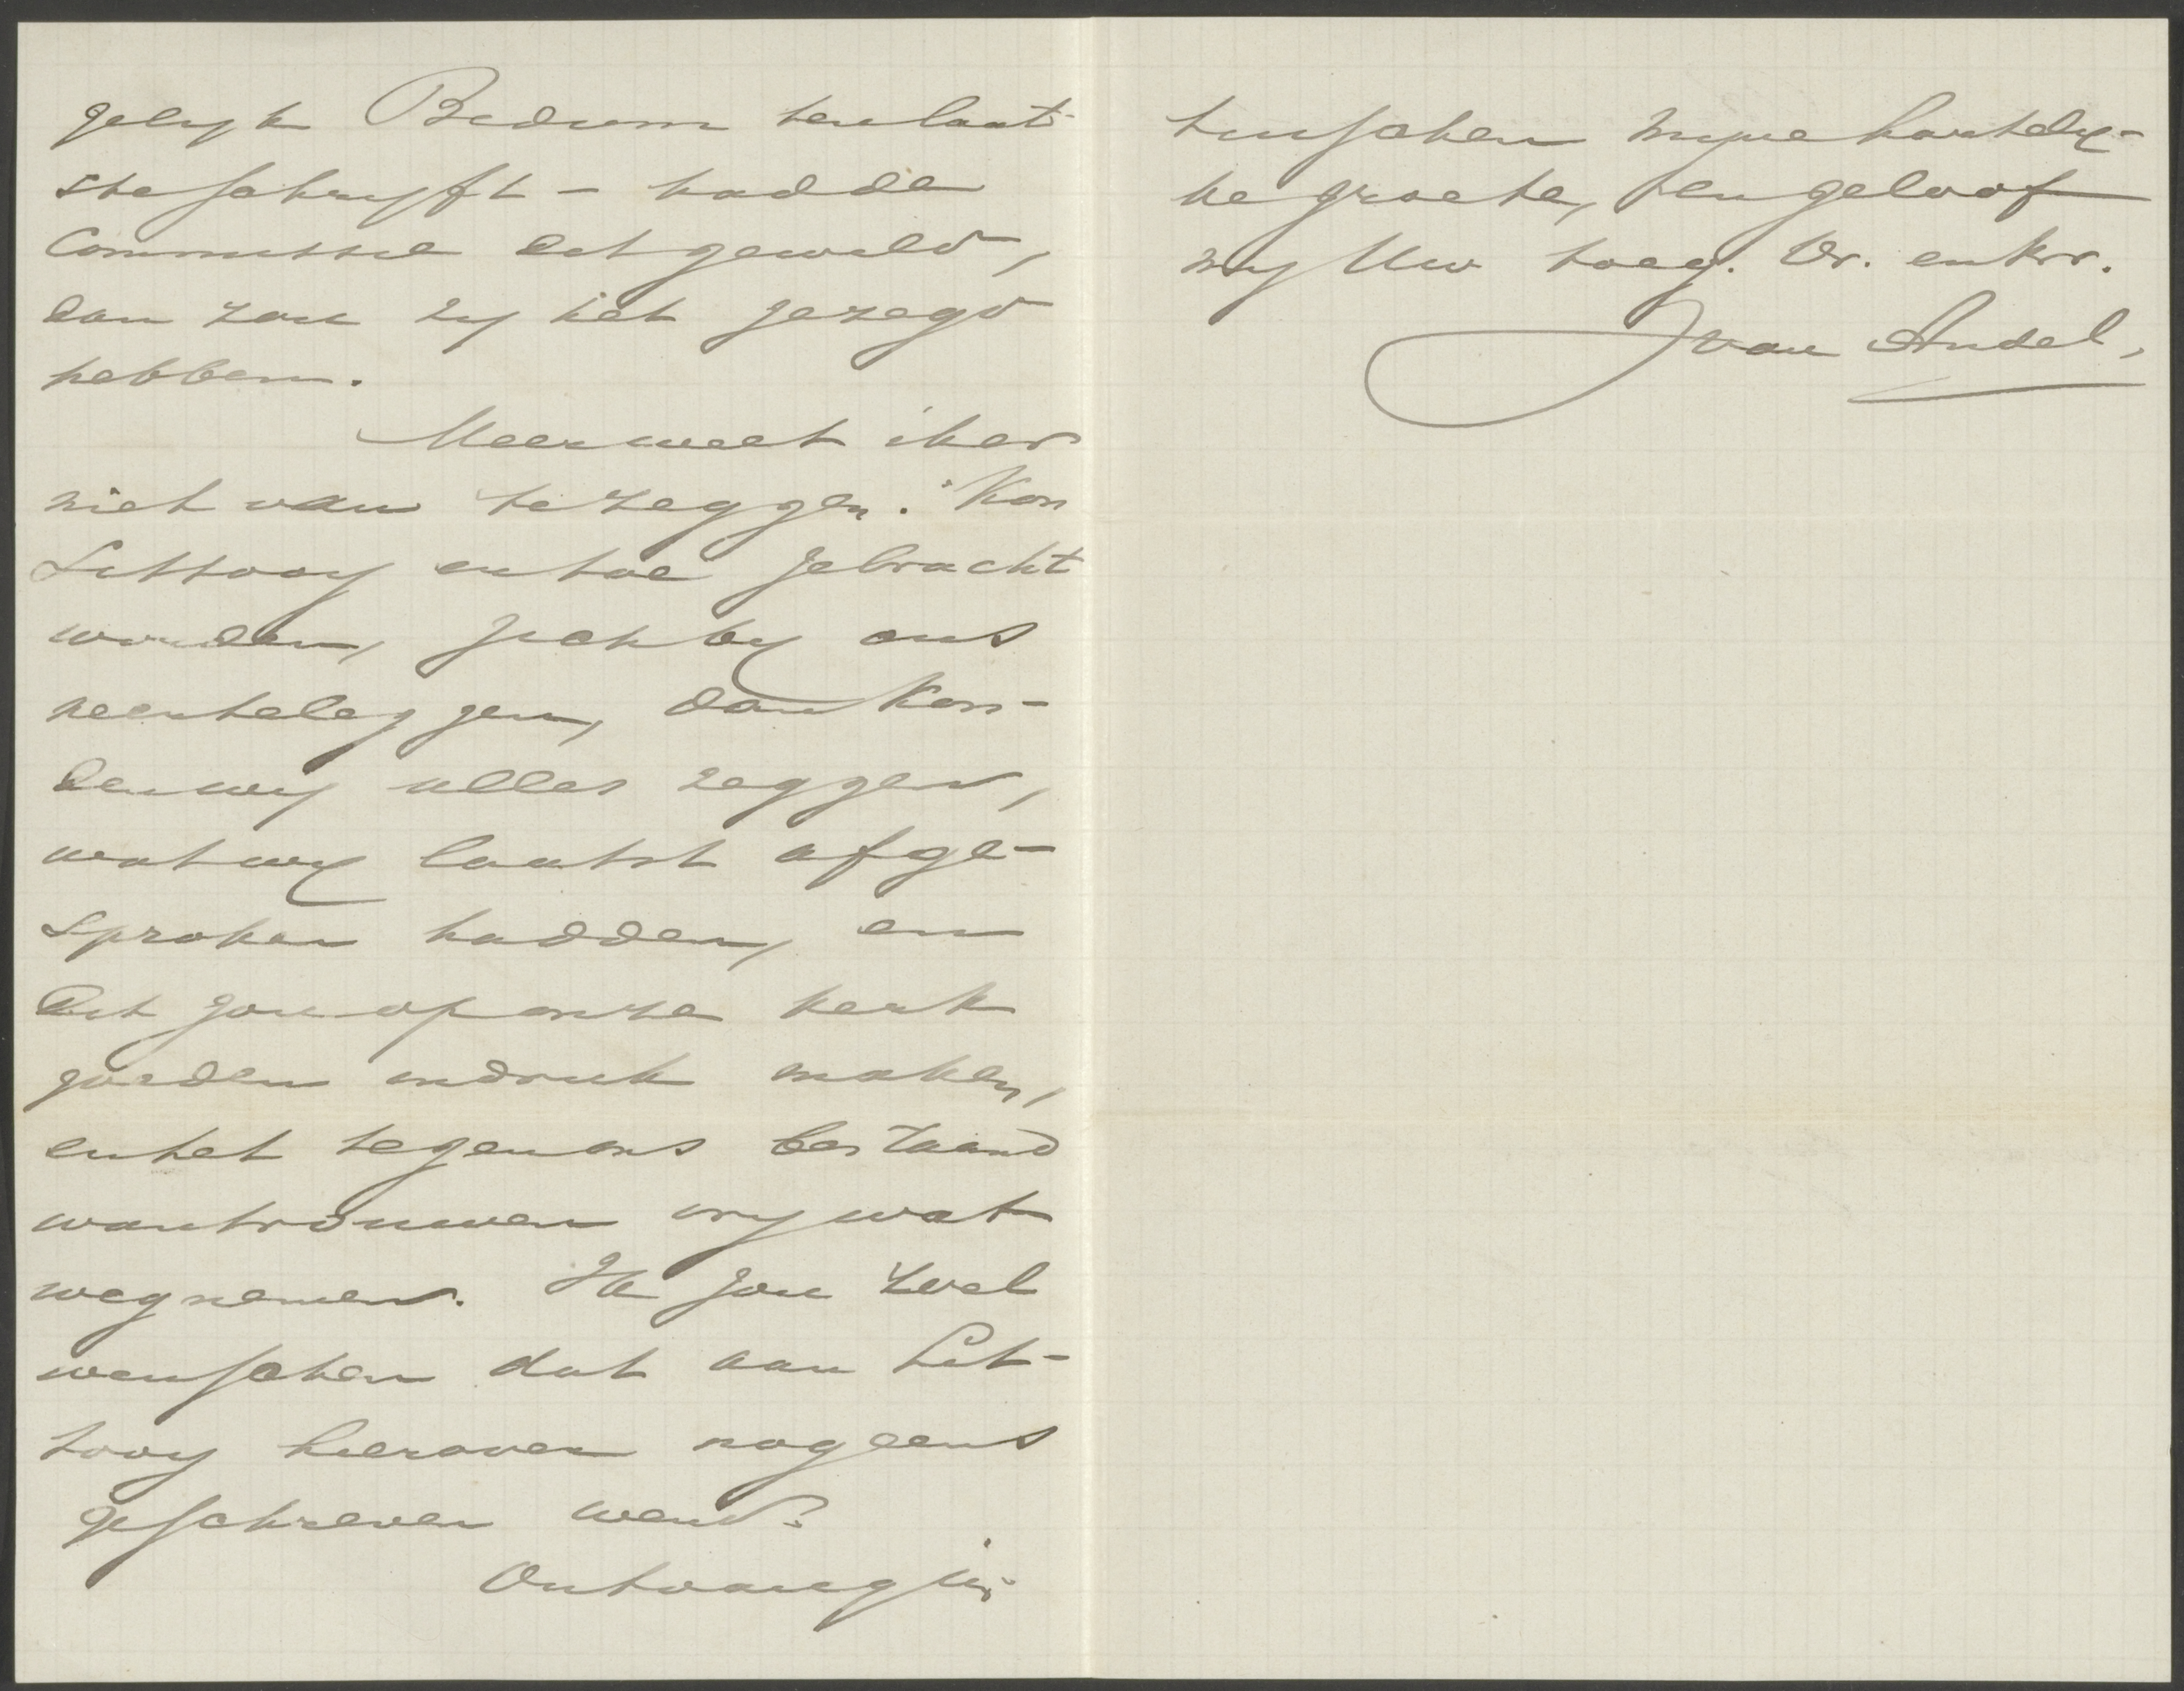 gelyk Bedum ten laat-
ste schryft – hadde
Commissie dit gewild,
dan zou zy het gezegd
hebben.
Meer weet ik er
niet van te zeggen. Kon
Littooy er toe gebracht
worden, zich by ons
neer te leggen, dan kon-
den wy alles zeggen,
wat wy laatst afge-
sproken hadden, en
dit zou op onze kerk
goeden indruk maken,
en het tegen ons bestaand
wantrouwen vry wat
wegnemen. Ik zou wel
wenschen dat aan Lit-
tooy hierover nog eens
geschreven werd.
Ontvang in-
tusschen myne hartely-
ke groete, en geloof
my Uw toeg. Dr. en br.
J van Andel,